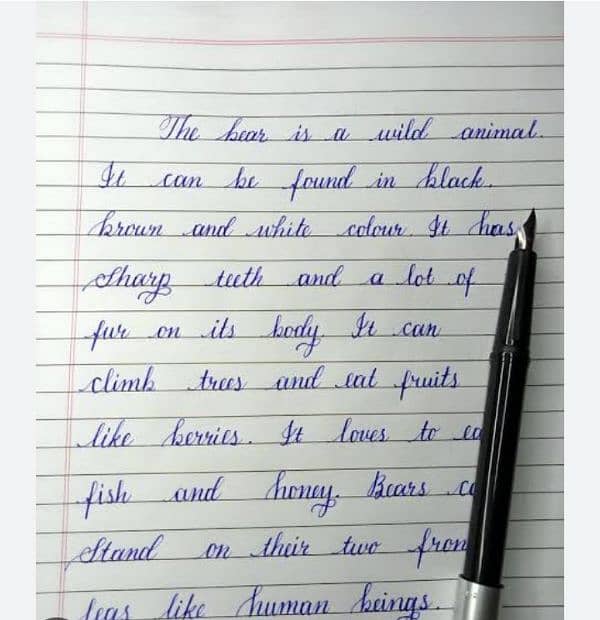 The bear is a wild animal.
It can be found in black.
brown and white colour. It has
Sharp teeth and a lot of
fur on its body. It can
climb trees and eat fruits
like berries. It loves to
fish and honey. Bears
Stand on their two
legs like human beings.